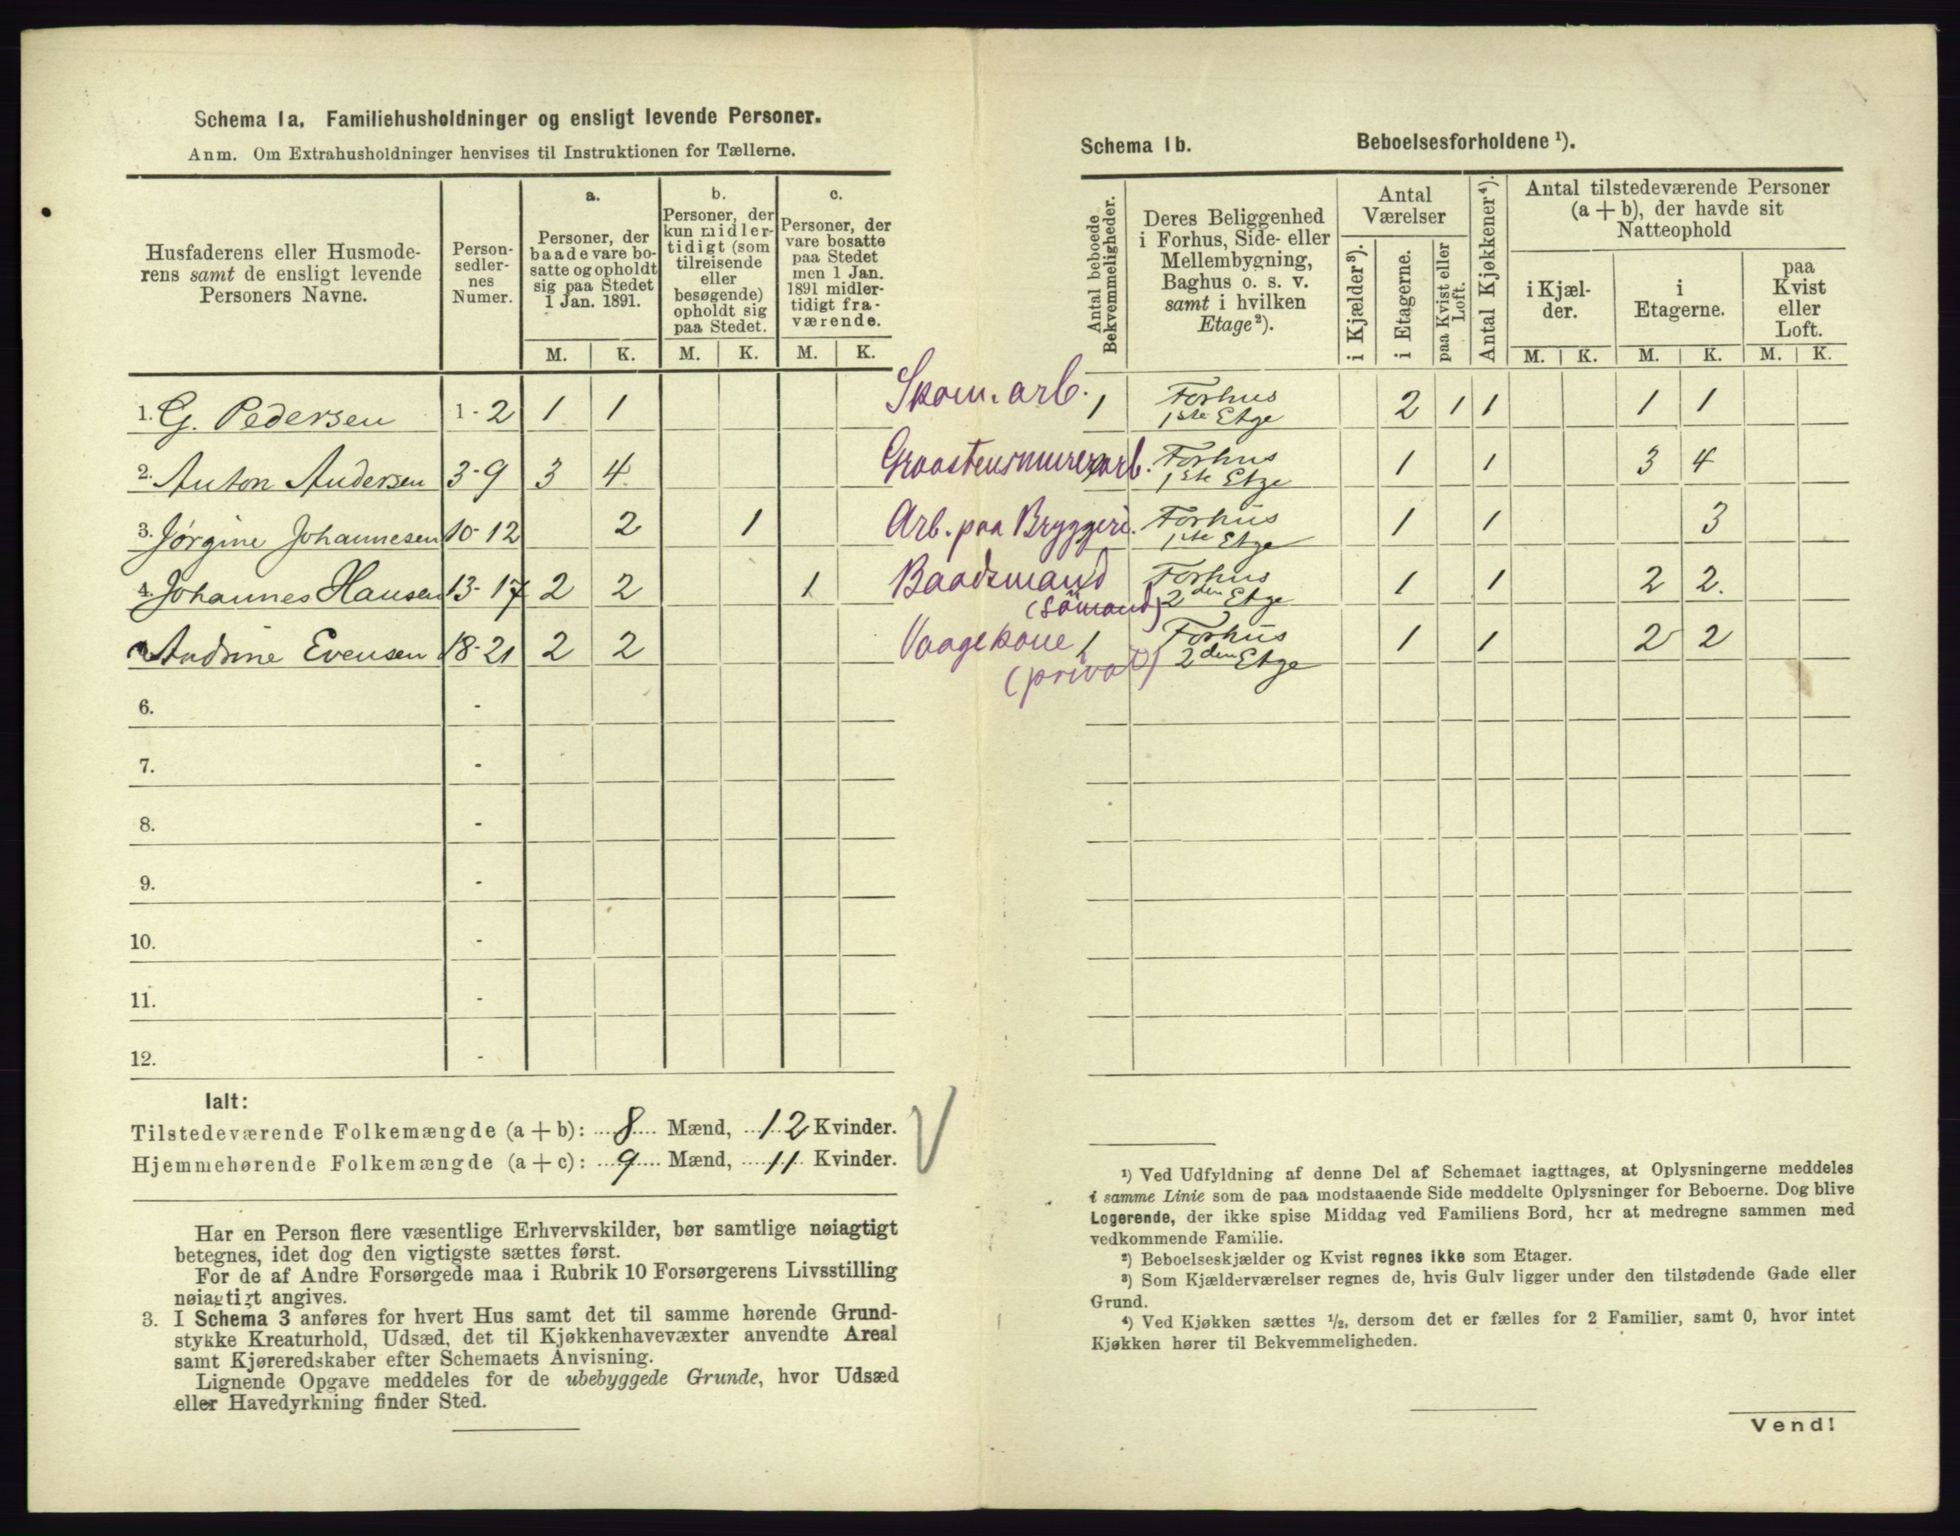 Schema 1a. Familiehusholdninger og ensligt levende Personer.
Anm. Om Extrahusholdninger henvises til Instruktionen for Tællerne.
Husfaderens eller Husmode-
rens samt de ensligt levende
Personers Navne.
Person-
sedler-
nes
Numer.
a.
Personer, der
baade vare bo-
satte og opholdt
sig paa Stedet
1 Jan. 1891.
b.
Personer, der
kun midler-
tidigt (som
tilreisende
eller
besøgende)
opholdt sig
paa Stedet.
c.
Personer, der
vare bosatte
paa Stedet
men 1 Jan.
1891 midler-
tidigt fra-
værende.
M. K. M. K. M. K.
1. G. Pedersen 1-2 1 1
2. Anton Andersen 3-9 3 4
3. Jørgine Johannesen 10-12 2 1
4. Johannes Hansen 13-17 2 2 1
Andrine Evensen 18-21 2 2
6. -
7. -
8. -
9. -
10. -
11. -
12. -
Ialt:
Tilstedeværende Folkemængde (a+b): 8 Mænd, 12 Kvinder.
Hjemmehørende Folkemængde (a+c): 9 Mænd, 11 Kvinder.
Har en Person flere væsentlige Erhvervskilder, bør samtlige nøiagtigt
betegnes, idet dog den vigtigste sættes først.
For de af Andre Forsørgede maa i Rubrik 10 Forsørgerens Livsstilling
nøiagtigt angives.
3. I Schema 3 anføres for hvert Hus samt det til samme hørende Grund-
stykke Kreaturhold, Udsæd, det til Kjøkkenhavevæxter anvendte Areal
samt Kjøreredskaber efter Schemaets Anvisning.
Lignende Opgave meddeles for de ubebyggede Grunde, hvor Udsæd
eller Havedyrkning finder Sted.
Schema 1b. Beboelsesforholdene ¹).
Antal beboede
Bekvemmeligheder.
Deres Beliggenhed
i Forhus, Side- eller
Mellembygning,
Baghus o. s. v.
samt i hvilken
Etage²).
Antal
Værelser
i Kjælder³).
i Etagerne.
paa Kvist eller
Loft.
Antal Kjøkkener⁴).
Antal tilstedeværende Personer
(a+b), der havde sit
Natteophold
i Kjæl-
der.
i
Etagerne.
paa
Kvist
eller
Loft.
M. K. M. K. M. K.
Skom. arb. 1 Forhus
1ste Etge 2 1 1 1 1
Graastensmurerarb. Forhus
1ste Etge 1 1 3 4
Arb. paa Bryggeri. Forhus
1ste Etge 1 1 3
Baadsmand
(Sömand) Forhus
2den Etge 1 1 2 2.
Vaagekone 1
(privat) Forhus
2den Etge 1 1 2 2
¹) Ved Udfyldning af denne Del af Schemaet iagttages, at Oplysningerne meddeles
i samme Linie som de paa modstaaende Side meddelte Oplysninger for Beboerne. Dog blive
Logerende, der ikke spise Middag ved Familiens Bord, her at medregne sammen med
vedkommende Familie.
²) Beboelseskjælder og Kvist regnes ikke som Etager.
³) Som Kjælderværelser regnes de, hvis Gulv ligger under den tilstødende Gade eller
Grund.
⁴) Ved Kjøkken sættes ½, dersom det er fælles for 2 Familier, samt 0, hvor intet
Kjøkken hører til Bekvemmeligheden.
Vend!